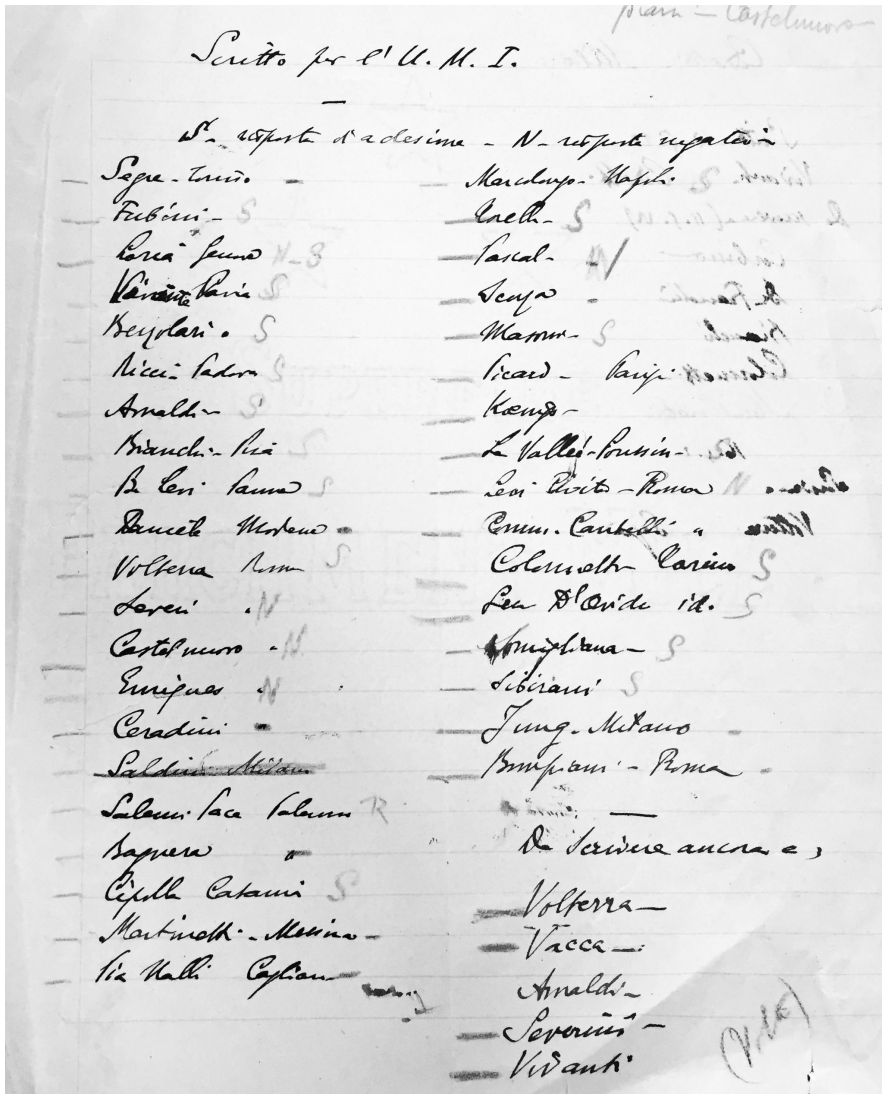 Castelnuovo
Scritto per l' U. M. I.
S - risposta di adesione - N - risposta negativa
Segre - Torino -
Fubini - S
Loria Genova N-S
Vivanti Pavia S
Berzolari . S
Ricci - Padova S
Arnaldi - S
Bianchi - Pisa S
B. Levi Parma S
Daniele Modena -
Volterra Roma S
Severi . N
Castelnuovo - N
Enriques . N
Ceradini -
Saldini Milano
Salemi Pace Palermo R
Bagnera " -
Cipolla Catania S
Martinetti - Messina -
Pia Nalli Cagliari -
Marcolongo - Napoli
Torelli - S
Pascal - N
Scorza -
Masoni - S
Picard - Parigi
Kœnigs -
La Vallée-Poussin -
Levi Civita - Roma N
Comm. Cantelli "
Colonnetti Torino S
Sen D'Ovidio id. S
Somigliana - S
Sibirani S
Jung - Milano -
Bompiani - Roma -
Da Scrivere ancora a :
Volterra -
Vacca - .
Arnaldi -
Severini -
Vivanti